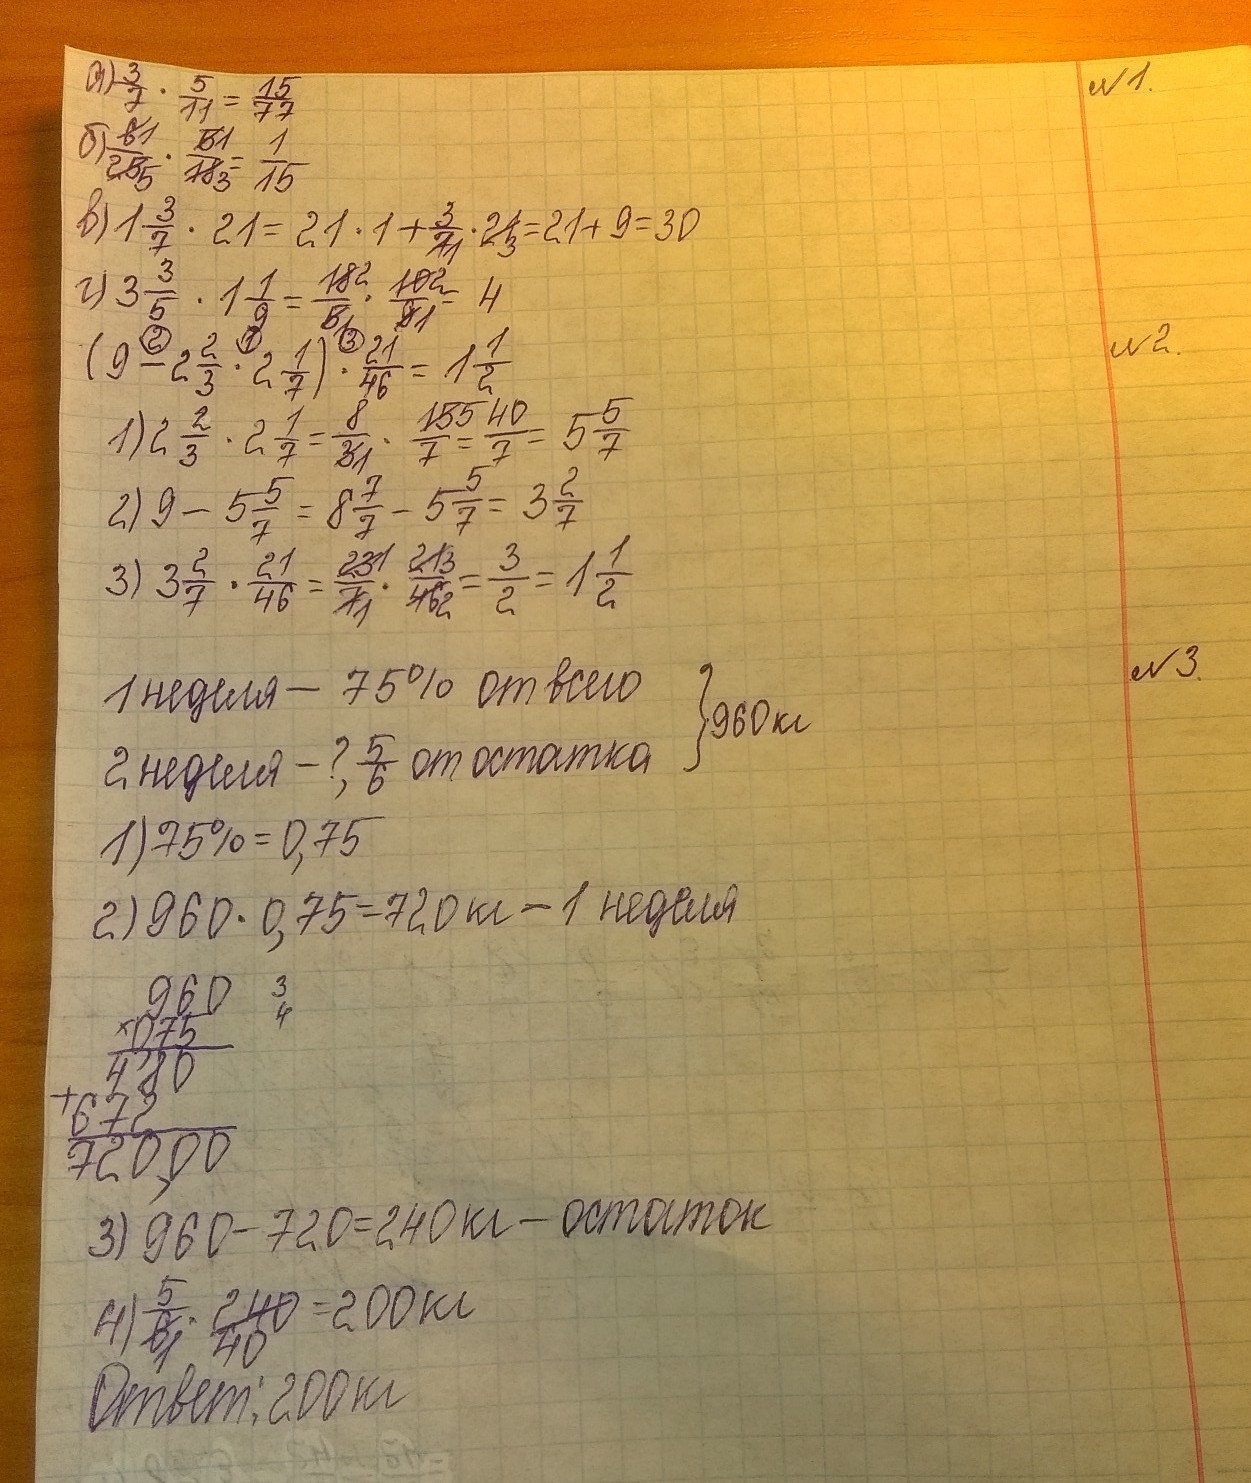 №1.
а) 3/7 · 5/11 = 15/77
б) 6 1/25 5 · 5 1/18 3 = 1/15
в) 1 3/7 · 21 = 21 · 1 + 3/7 1 · 21 3 = 21 + 9 = 30
г) 3 3/5 · 1 1/9 = 18 2/5 1 · 10 2/9 1 = 4
№2.
(9 - 2 2/3 · 2 1/7) · 21/46 = 1 1/2
2 1 3
1) 2 2/3 · 2 1/7 = 8/3 1 · 15 5/7 = 40/7 = 5 5/7
2) 9 - 5 5/7 = 8 7/7 - 5 5/7 = 3 2/7
3) 3 2/7 · 21/46 = 23 1/7 1 · 21 3/46 2 = 3/2 = 1 1/2
№3.
1 неделя - 75% от всего
2 неделя - ?, 5/6 от остатка } 960 кг
1) 75% = 0,75
2) 960 · 0,75 = 720 кг - 1 неделя
960 3
× 0,75 4
480
+ 672
720,00
3) 960 - 720 = 240 кг - остаток
4) 5/6 1 · 240 40 = 200 кг
Ответ: 200 кг